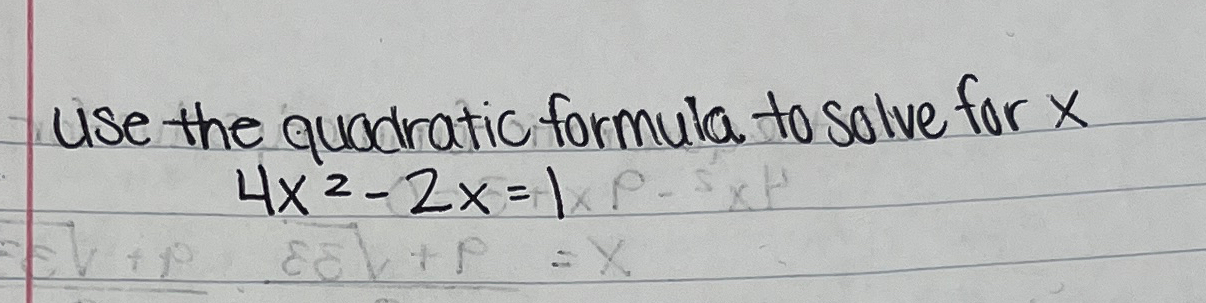 use the quadratic formula to solve for x
4x² - 2x = 1